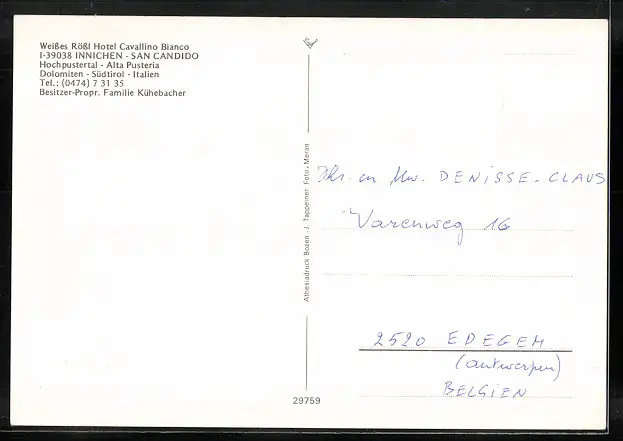 Weißes Rößl Hotel Cavallino Bianco
I-39038 INNICHEN - SAN CANDIDO
Hochpustertal - Alta Pusteria
Dolomiten - Südtirol - Italien
Tel.: (0474) 7 31 35
Besitzer-Propr. Familie Kühebacher
Athesiadruck Bozen - J. Tappeiner Foto - Meran
29759
Dhr. en Mw. DENISSE - CLAUS
Varenweg 16
2520 EDEGEM
(antwerpen)
BELGIEN